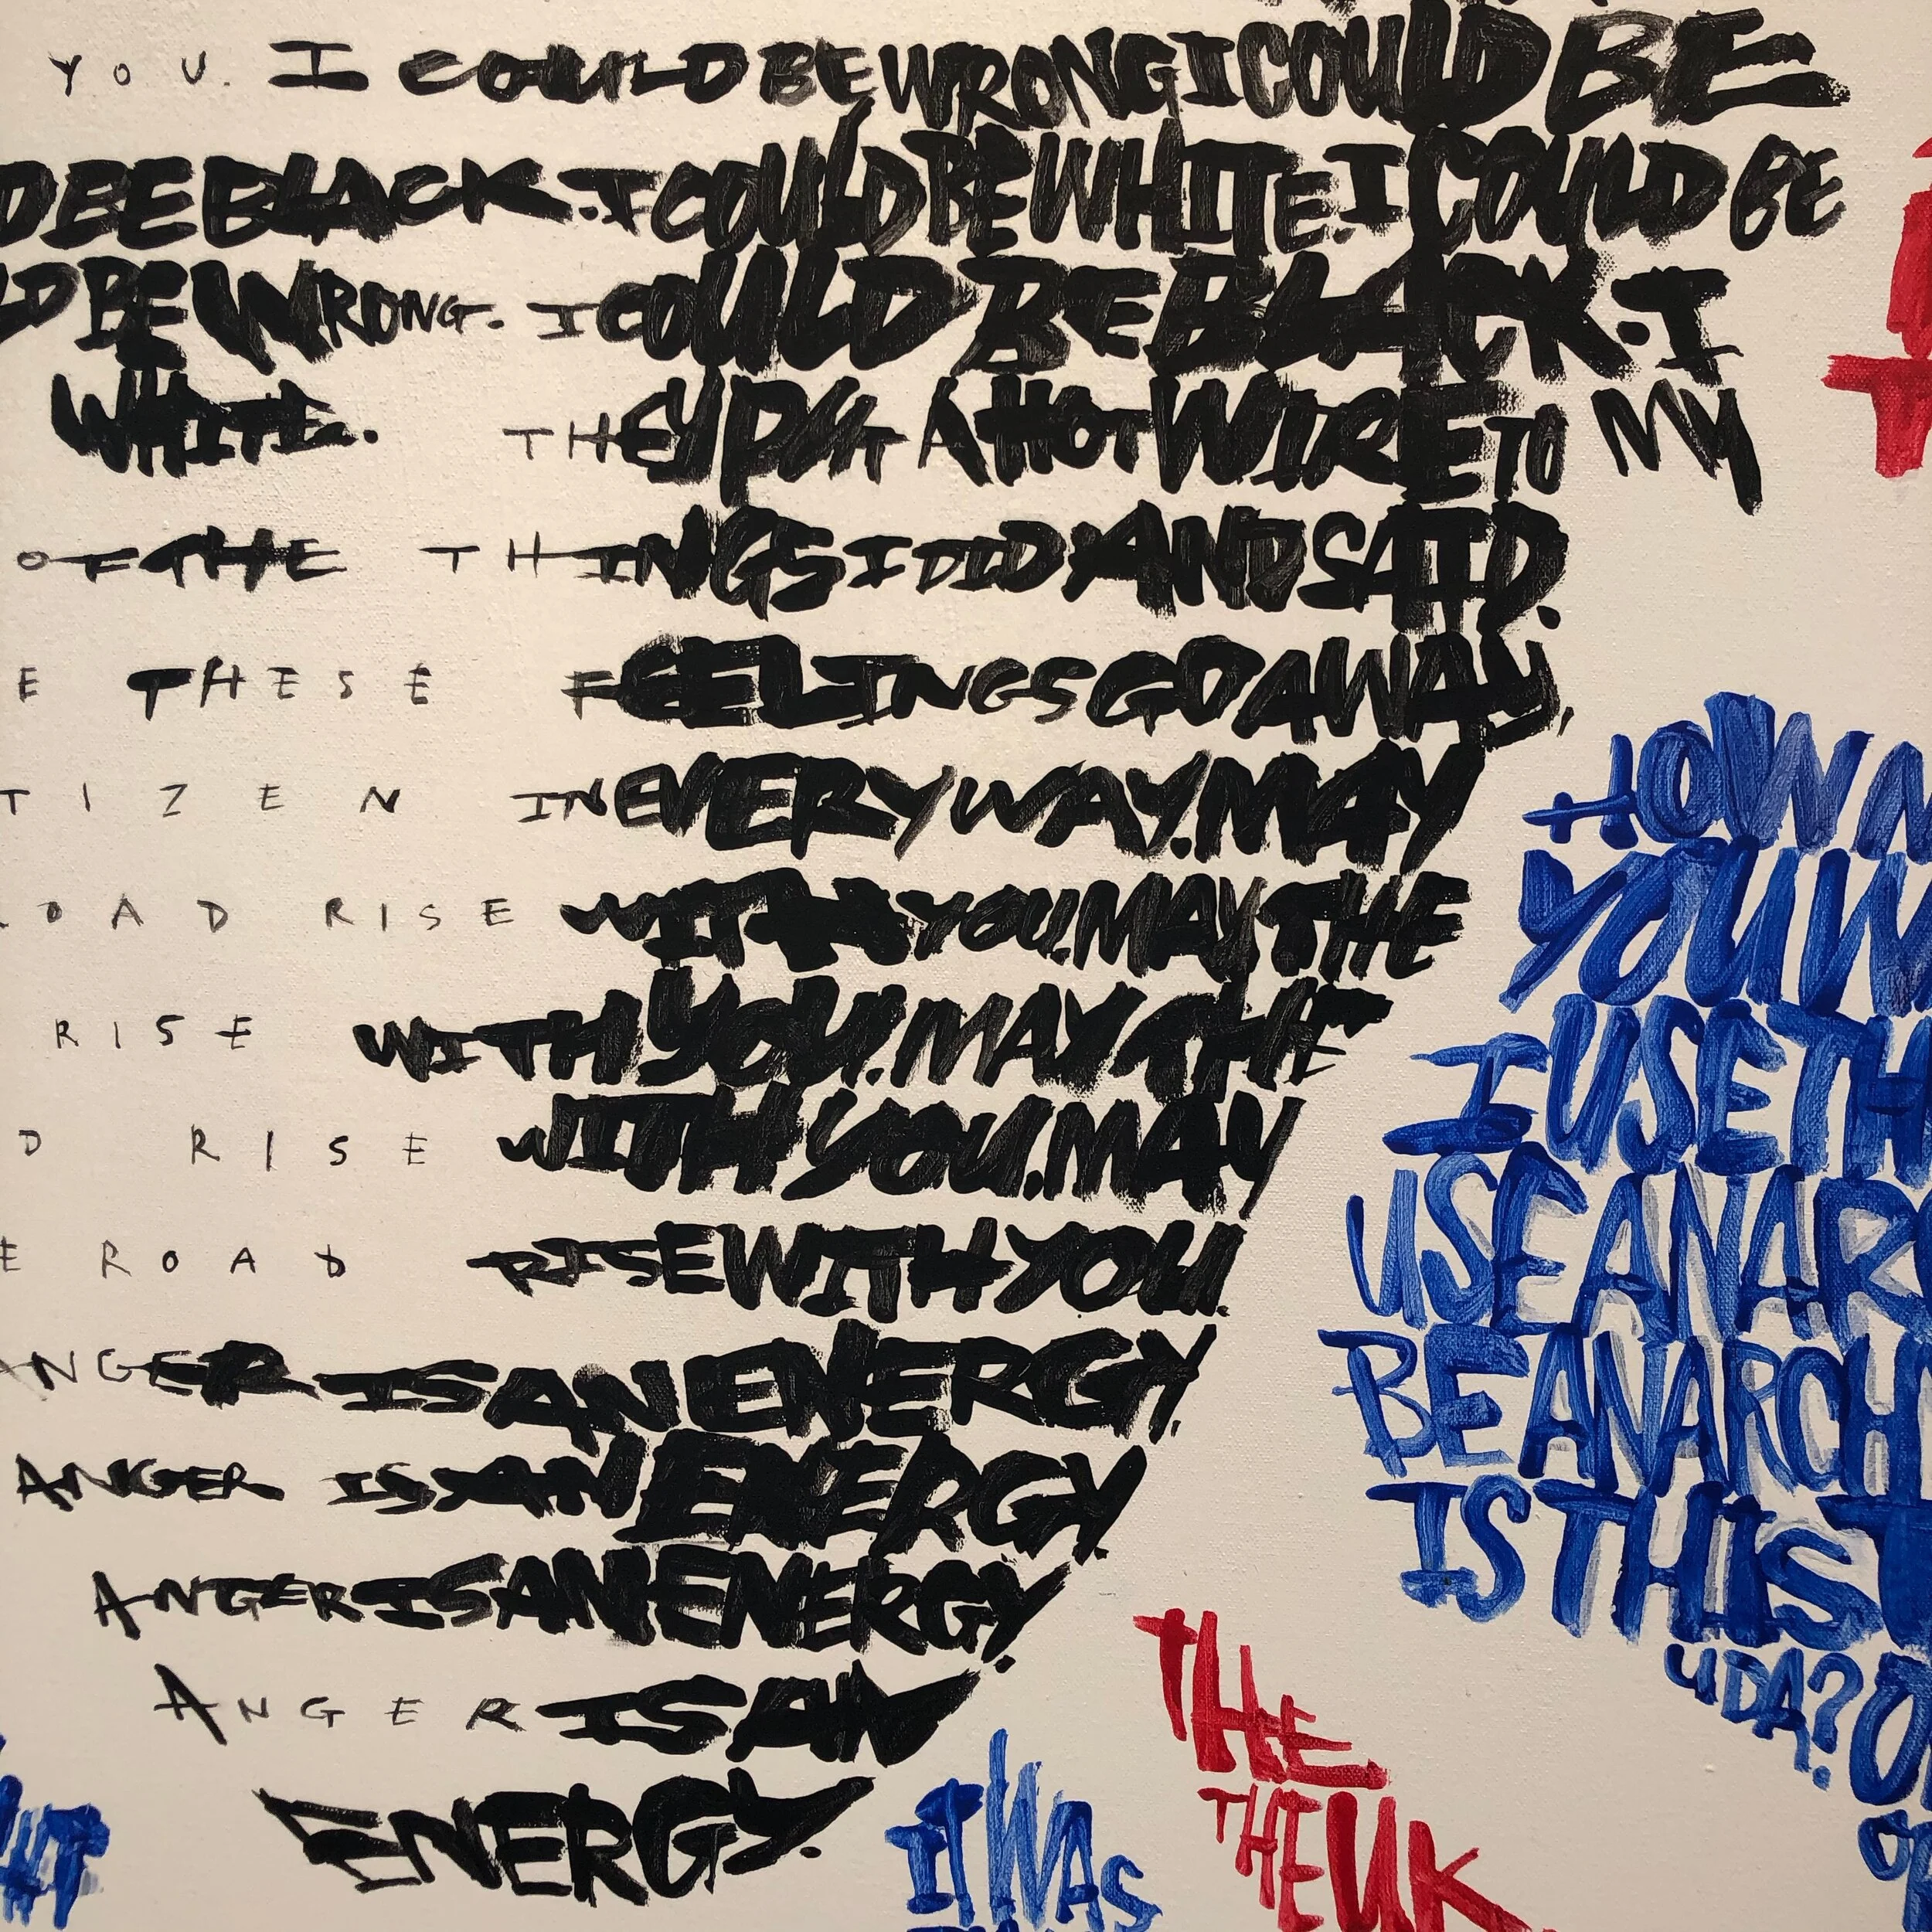 YOU. I COULD BE WRONG I COULD BE
BLACK. I COULD BE WHITE. I COULD BE
LD BE WRONG. I COULD BE BLACK. I
WHITE. THEY PUT A HOT WIRE TO MY
OF THE THINGS I DID AND SAID.
E THESE FEELINGS GO AWAY,
TIZEN IN EVERY WAY. MAY
OAD RISE WITH YOU. MAY THE
RISE WITH YOU. MAY THE
D RISE WITH YOU. MAY
E ROAD RISE WITH YOU.
ANGER IS AN ENERGY.
ANGER IS AN ENERGY.
ANGER IS AN ENERGY.
ANGER IS AN
ENERGY.
YOU W
I USE TH
USE ANAR
BE ANARCH
IS THIS T
UDA? O
IT WAS
THE
THE UK